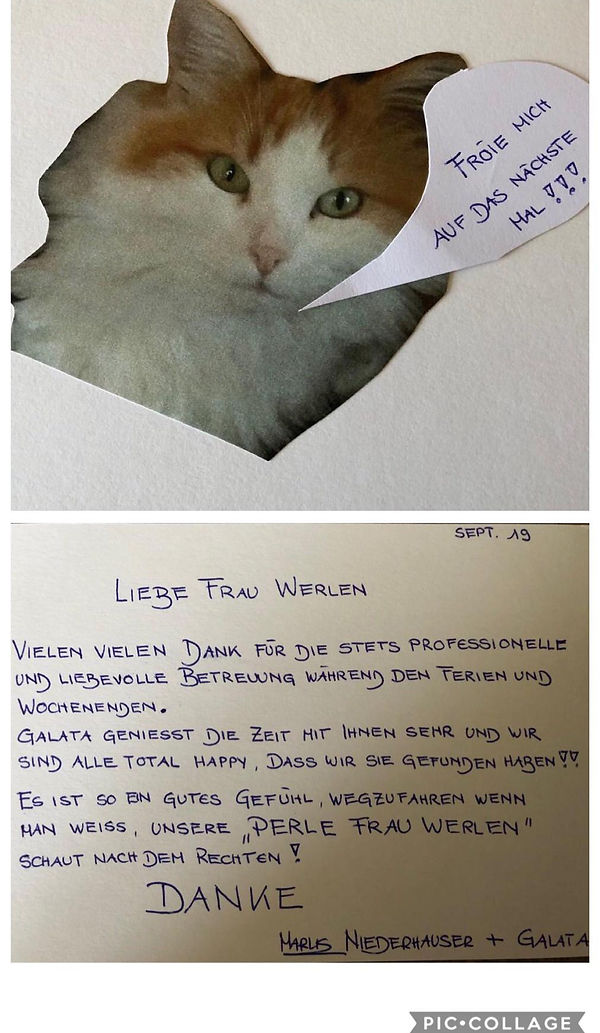 FRÖIE MICH
AUF DAS NÄCHSTE
MAL!!!
SEPT. 19
LIEBE FRAU WERLEN
VIELEN VIELEN DANK FÜR DIE STETS PROFESSIONELLE
UND LIEBEVOLLE BETREUUNG WÄHREND DEN FERIEN UND
WOCHENENDEN.
GALATA GENIESST DIE ZEIT MIT IHNEN SEHR UND WIR
SIND ALLE TOTAL HAPPY, DASS WIR SIE GEFUNDEN HABEN!!
ES IST SO EIN GUTES GEFÜHL, WEGZUFAHREN WENN
MAN WEISS, UNSERE „PERLE FRAU WERLEN"
SCHAUT NACH DEM RECHTEN!
DANKE
MARLIS NIEDERHAUSER + GALATA
PIC•COLLAGE